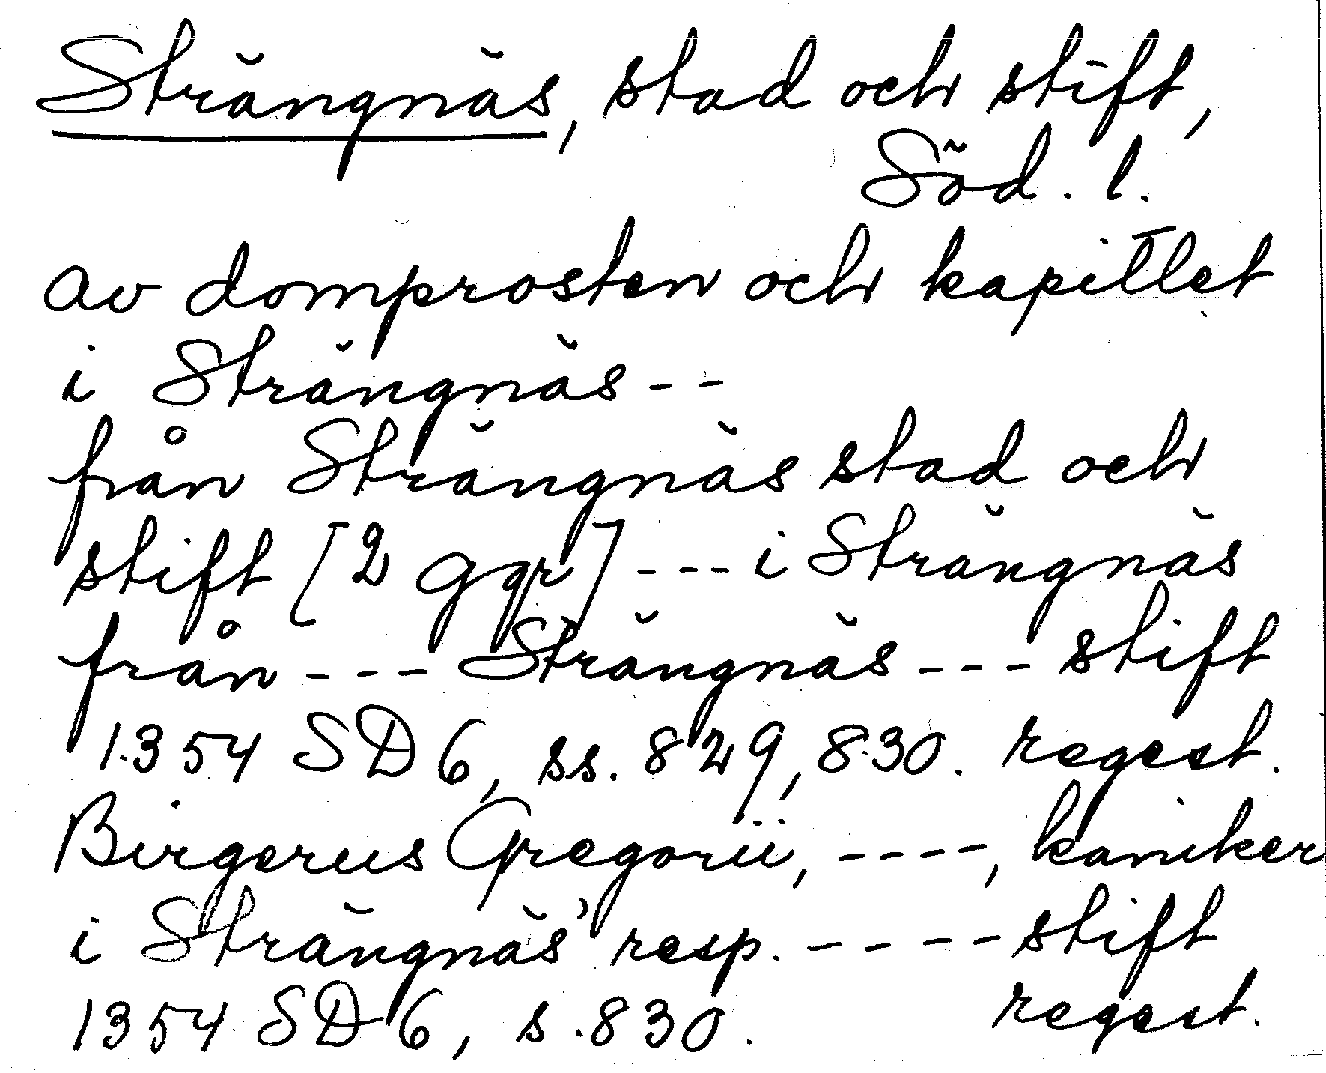 Strängnäs, stad och stift,
Söd. l.
av domprosten och kapitlet
i Strängnäs - -
från Strängnäs stad och
stift [2 ggr] - - - i Strängnäs
från - - - Strängnäs - - - stift
1354 SD 6, ss. 829, 830. regest.
Birgerus Gregorii, - - - -, kaniker
i Strängnäs' resp. - - - - stift
1354 SD 6, s. 830. regest.